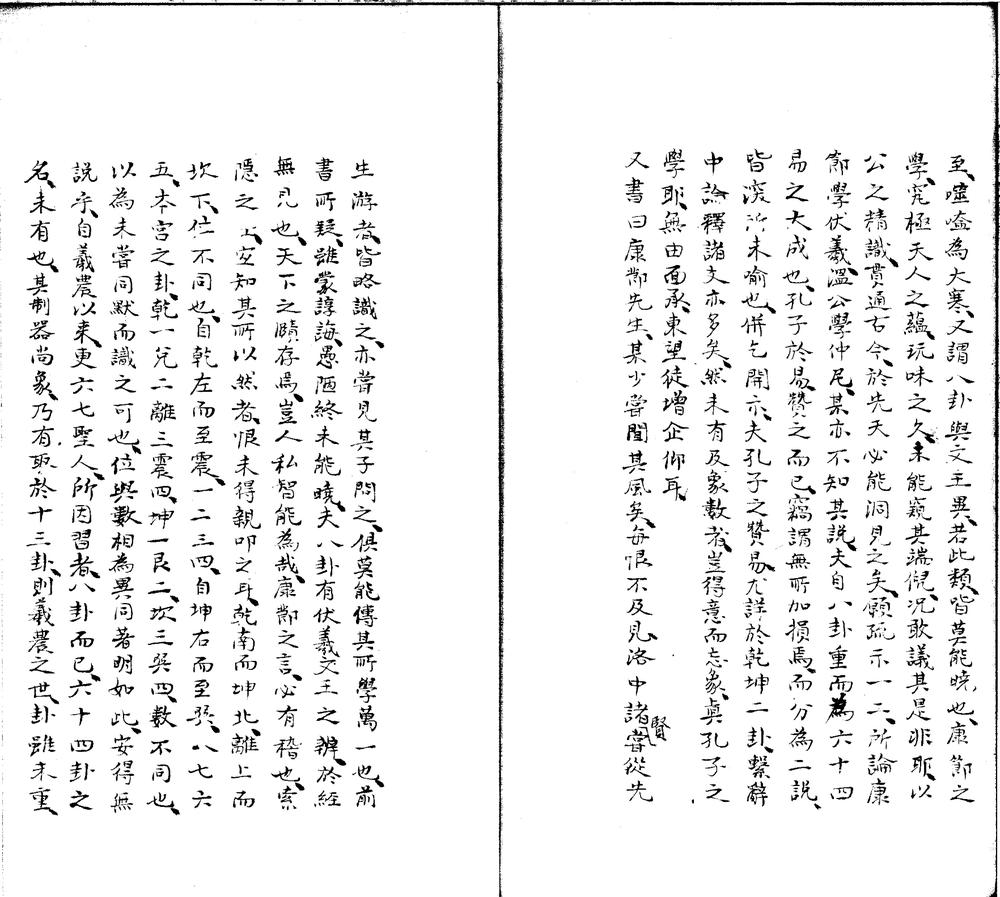 至、噬嗑為大寒、又謂八卦與文王異、若此類皆莫能曉也、康節之
學、究極天人之蘊、玩味之久、未能窺其端倪、况敢議其是非耶、以
公之精識、貫通古今、於先天必能洞見之矣、願疏示一二、所論康
節學伏羲、溫公學仲尼、某亦不知其說、夫自八卦重而為六十四
易之大成也、孔子於易、贊之而已、竊謂無所加損焉、而分為二說、
皆淺所未喻也、併乞開示、夫孔子之贊易、尤詳於乾坤二卦、繫辭
中論釋諸爻亦多矣、然未有及象數者、豈得意而忘象、真孔子之
學耶、無由面承、東望徒增企仰耳、
又書曰康節先生、某少嘗聞其風矣、每恨不及見、洛中諸賢嘗從先
生游者、皆略識之、亦嘗見其子問之、俱莫能傳其所學萬一也、前
書所疑、雖蒙諄誨、愚陋終未能曉、夫八卦有伏羲文王之辨、於經
無見也、天下之賾存焉、豈人私智能為哉、康節之言、必有稽也、索
隱之士、安知其所以然者、恨未得親叩之耳、乾南而坤北、離上而
坎下、位不同也、自乾左而至震、一二三四、自坤右而至巽、八七六
五、本宮之卦、乾一兌二離三震四、坤一艮二、坎三巽四、數不同也、
以為未嘗同、默而識之可也、位與數相為異同著明如此、安得無
說乎、自羲農以來、更六七聖人、所因習者、八卦而已、六十四卦之
名、未有也、其制器尚象、乃有取於十三卦、則羲農之世、卦雖未重、